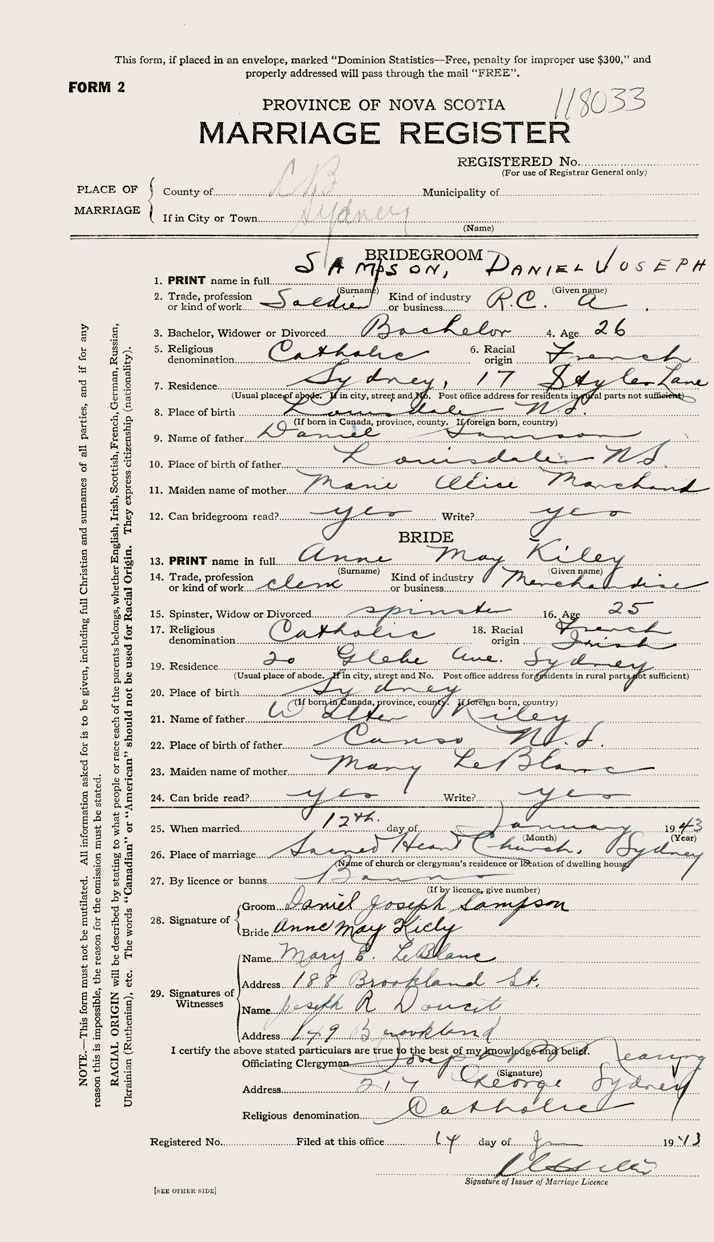 This form, if placed in an envelope, marked “Dominion Statistics—Free, penalty for improper use $300,” and
properly addressed will pass through the mail “FREE”.
FORM 2
PROVINCE OF NOVA SCOTIA 118033
MARRIAGE REGISTER
REGISTERED No.
(For use of Registrar General only)
PLACE OF MARRIAGE
County of C B Municipality of
If in City or Town Sydney
(Name)
BRIDEGROOM
1. PRINT name in full SAMPSON, DANIEL JOSEPH
(Surname) (Given name)
2. Trade, profession or kind of work Soldier Kind of industry or business R.C. A.
3. Bachelor, Widower or Divorced Bachelor 4. Age 26
5. Religious denomination Catholic 6. Racial origin French
7. Residence Sydney, 17 Styles Lane
(Usual place of abode. If in city, street and No. Post office address for residents in rural parts not sufficient)
8. Place of birth Louisdale N.S.
(If born in Canada, province, county. If foreign born, country)
9. Name of father Daniel Samson
10. Place of birth of father Louisdale N.S.
11. Maiden name of mother Marie Alice Marchand
12. Can bridegroom read? yes Write? yes
BRIDE
13. PRINT name in full Anne May Kiley
(Surname) (Given name)
14. Trade, profession or kind of work clerk Kind of industry or business Merchandise
15. Spinster, Widow or Divorced spinster 16. Age 25
17. Religious denomination Catholic 18. Racial origin French Irish
19. Residence 20 Glebe Ave. Sydney
(Usual place of abode. If in city, street and No. Post office address for residents in rural parts not sufficient)
20. Place of birth Sydney
(If born in Canada, province, county. If foreign born, country)
21. Name of father Walter Kiley
22. Place of birth of father Canso N.S.
23. Maiden name of mother Mary LeBlanc
24. Can bride read? yes Write? yes
25. When married 12th. day of January 1943
(Month) (Year)
26. Place of marriage Sacred Heart Church, Sydney
(Name of church or clergyman's residence or location of dwelling house)
27. By licence or banns Banns
(If by licence, give number)
28. Signature of
Groom Daniel Joseph Sampson
Bride Anne May Kiely
29. Signatures of Witnesses
Name Mary E. LeBlanc
Address 188 Brookland St.
Name Joseph R Doucet
Address 149 Brookland
I certify the above stated particulars are true to the best of my knowledge and belief.
Officiating Clergyman Joseph
(Signature)
Address 217 George Sydney
Religious denomination Catholic
Registered No. Filed at this office 14 day of 1943
Signature of Issuer of Marriage Licence
[SEE OTHER SIDE]
NOTE.—This form must not be mutilated. All information asked for is to be given, including full Christian and surnames of all parties, and if for any
reason this is impossible, the reason for the omission must be stated.
RACIAL ORIGIN will be described by stating to what people or race each of the parents belongs, whether English, Irish, Scottish, French, German, Russian,
Ukrainian (Ruthenian), etc. The words “Canadian” or “American” should not be used for Racial Origin. They express citizenship (nationality).